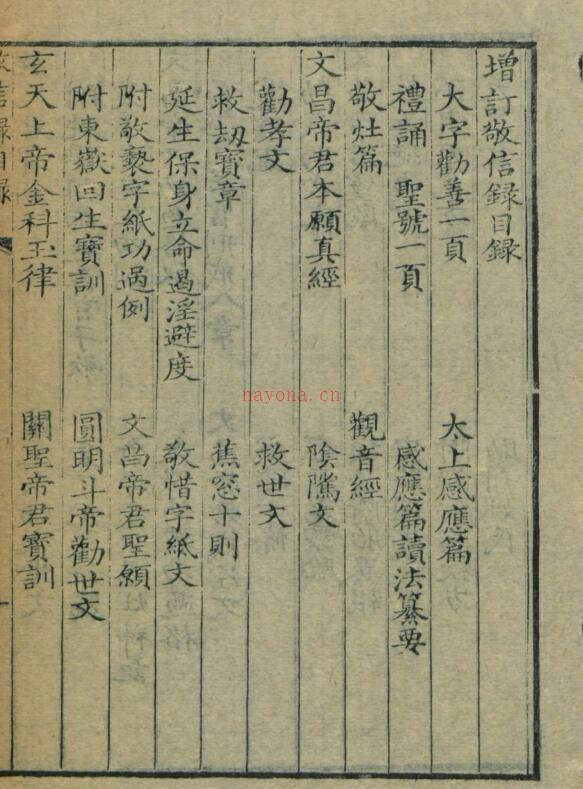 增訂敬信録目録
大字勸善一頁　太上感應篇
禮誦　聖號一頁　感應篇讀法纂要
敬灶篇　觀音經
文昌帝君本願真經　陰隲文
勸孝文　救世文
救刧寳章　蕉窓十則
延生保身立命遏淫避度　敬惜字紙文
附敬褻字紙功過例　文昌帝君聖願
附東嶽回生寳訓　圓明斗帝勸世文
玄天上帝金科玉律　關聖帝君寳訓
信録目録
一
nayona.cn